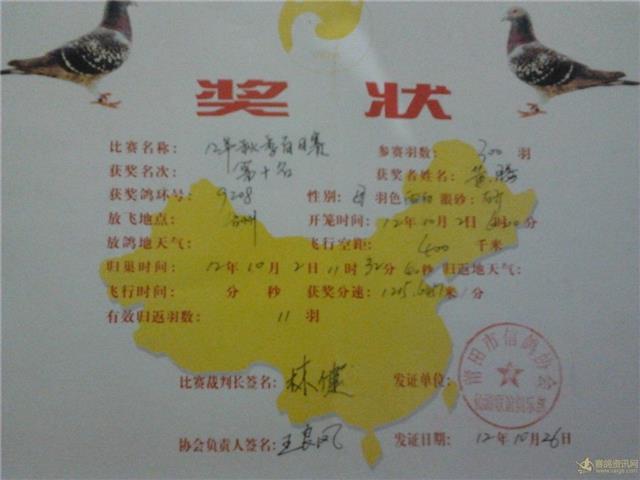 奖 状
比赛名称： 12年秋季百日赛 参赛羽数： 300 羽
获奖名次： 第十名 获奖者姓名：
获奖鸽环号： 9208 性别： 羽色 眼砂：
放飞地点： 开笼时间：12年10月2日 分
放鸽地天气： 飞行空距： 400 千米
归巢时间： 12年10月2日11时32分 秒 归返地天气：
飞行时间： 分 秒 获奖分速： 米/分
有效归返羽数： 11 羽
比赛裁判长签名： 林健 发证单位：
莆田市信鸽协会
协会负责人签名：王良风 发证日期： 12年10月26日
赛鸽资讯网